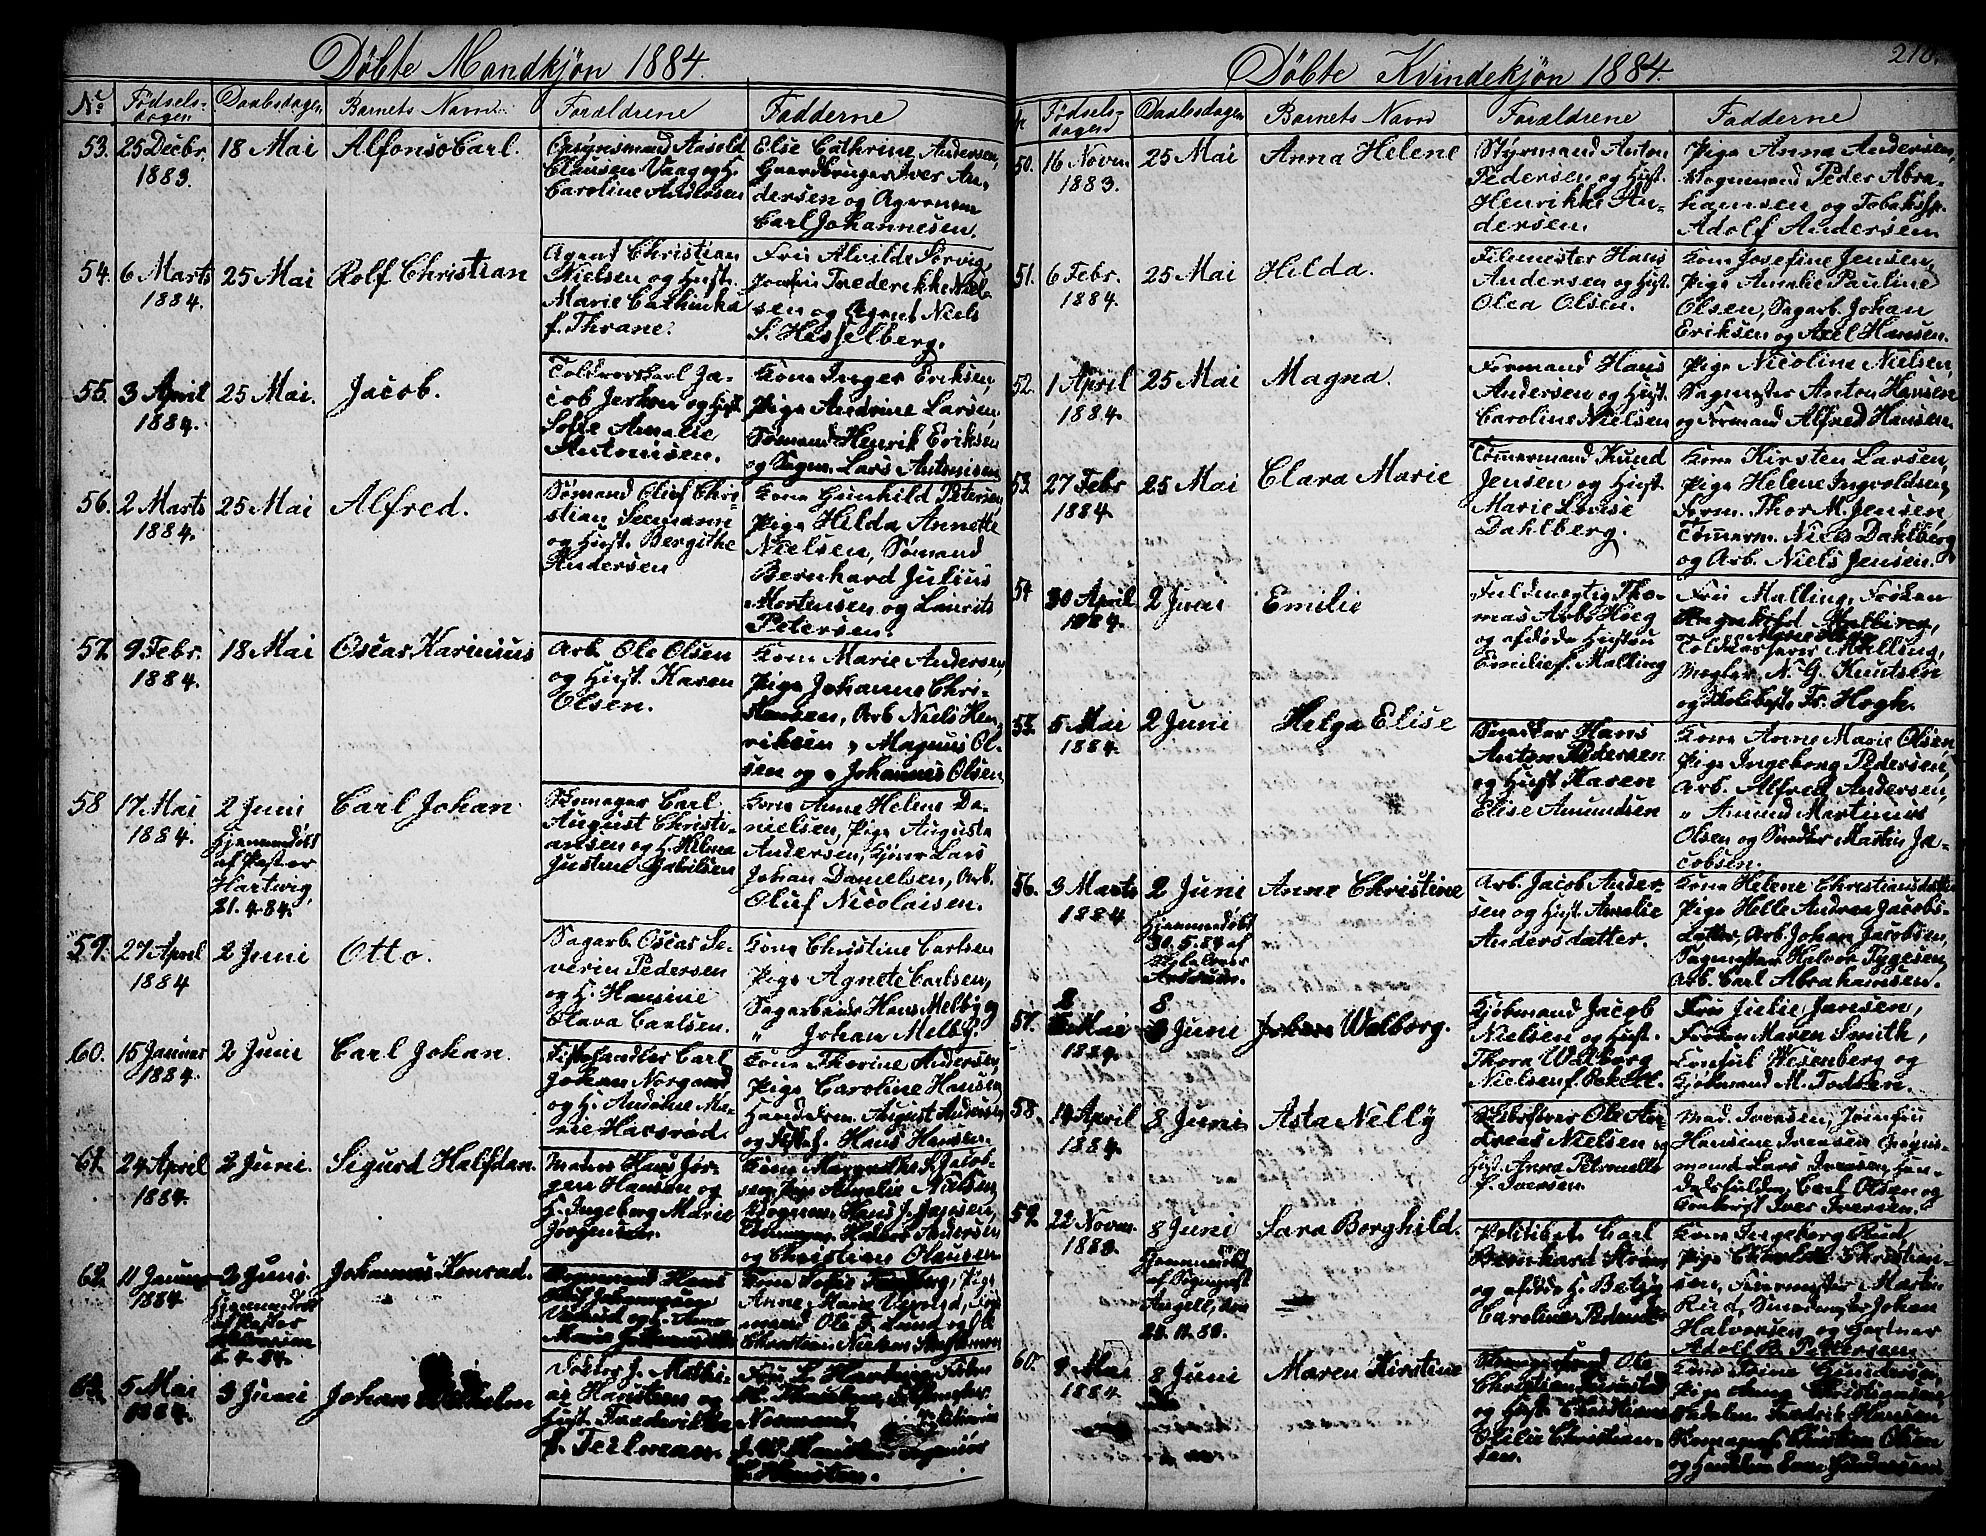 Döbte Mandkjön 1884.
No. Födselsdagen Daabsdagen Barnets Navn Forældrene Fadderne
53. 25 Decbr. 1883. 18 Mai Alfonso Carl.
Clausen Vaag og H.
Caroline Andersen
Else Cathrine Andersen,
Gaardbruger Iver An-
dersen og Agronom
Carl Johannesen.
54. 6 Marts 1884. 25 Mai Rolf Christian
Agent Christian
Nielsen og Hust.
Marie Cathinka
f. Thrane.
Fru Alvilde Sorvig,
Jomfru Frederikke Niel-
sen og Agent Niels
S. Hesselberg.
55. 3 April 1884. 25 Mai. Jacob.
cob Jerksen og Hust.
Sofie Amalie
Antonisen.
Kone Inger Eriksen,
Pige Andrine Larsen,
Tømmand Henrik Eriksen
og Sagm. Lars Antonisen
56. 2 Marts 1884. 25 Mai Alfred.
Sömand Oluf Chri-
stian Seemann
og Hust. Bergithe
Andersen
Kone Gunhild Petersen,
Pige Hilda Annette
Nielsen, Sömand
Bernhard Julius
Mortensen og Laurits
Petersen.
57. 9 Febr. 1884. 18 Mai Oscar Karinius
Arb. Ole Olsen
og Hust. Karen
Olsen.
Kone Marie Andersen,
Pige Johanne Chri-
stensen, Arb Niels Hen-
riksen " Magnus Ol-
sen og " Johannes Olsen
58 17 Mai 1884. 2 Juni Carl Johan
Hjemmedöbt
af Pastor
Hartwig,
21.4.84.
August Christi-
ansen og H. Helma
Justine Gabrilsen
Kone Anne Helene Da-
nielsen, Pige Augusta
Andersen, Kjører Lars
Johan Danielsen, Arb.
Oluf Nicolaisen.
59. 27 April 1884 2 Juni Otto.
Sagarb. Oscar Se-
verin Pedersen
og H. Hansine
Olava Carlsen.
Kone Christine Carlsen
Pige Agnete Carlsen,
Sagarbeider Hans Melby og
" Johan Melby.
60. 15 Januar 1884 2 Juni Carl Johan.
Fiskehandler Carl
Johan Norgaard
Kone Thorine Andersen,
Pige Caroline Hansen,
August Andersen
og Hans Hansen.
61. 24 April 1884. 2 Juni. Sigurd Halfdan.
Maler Hans Jör-
gen Hansen og
H. Ingeborg Marie
Jörgensen.
Kone Margrethe S. Jacob-
sen, Pige Amelie Nielsen,
Vognm. Hans J. Jansen,
og Christian Olausen
62. 11 Januar 1884 2 Juni. Johannes Konrad.
Hjemmedöbt
af Pastor
Vognmand Hans
Anne Marie
Christian Nielsen
63. 5 Mai 1884. 3 Juni Johan Wilhelm
Doktor J. Mathi-
as Hansteen og
Hust. Frederikke
f. Teilman.

Döbte Kvindekjön 1884. 210.
Födselsdagen Daabsdagen Barnets Navn Forældrene Fadderne
50. 16 Novm. 1883. 25 Mai Anna Helene
Styrmand Anton
Pedersen og Hust.
Henrikke An-
dersen.
Pige Anna Andersen,
Vognmand Peder Abra-
hamsen og
Adolf Andersen
51. 6 Febr. 1884. 25 Mai Hilda.
Filemester Hans
Andersen og Hust.
Olea Olsen.
Kone Josefine Jensen,
Pige Amalie Pauline
Olsen, Sagarb. Johan
Eriksen og Axel Hansen.
52. 1 April 1884. 25 Mai Magna.
Formand Hans
Andersen og Hust.
Caroline Nielsen
Pige Nicoline Nielsen,
Sagmester Anton Hansen
og Formand Alfred Hansen.
53. 27 Febr 1884. 25 Mai Clara Marie
Tömmermand Knud
Jensen og Hust.
Marie Lovise
Dahlberg.
Kone Kirsten Larsen,
Pige Helene Ingvoldsen,
Form. Thor M. Jensen,
Tömmerm. Niels Dahlberg
og Arb. Niels Jensen.
54 30 April 1884. 2 Juni Emilie
Fuldmægtig Tho-
mas Arbo Höeg
og afdöde Hustru
Emilie f. Malling
Fru Malling, Fröken
Malling,
Toldkasserer Malling,
Megler N. G. Knutsen
og Skolebest. Fr. Hogh.
55. 5 Mai 1884. 2 Juni Helga Elise
Snedker Hans
Anton Pedersen
og Hust Karen
Elise Amundsen
Kone Anne Marie Olsen
Pige Ingeborg Pedersen,
Arb. Alfred Andersen,
" Amund Martinius
Olsen og Snedker Martin Ja-
cobsen.
56. 3 Marts 1884. 2 Juni Anne Christine
Hjemmedöbt
30.5.84 af
Arb. Jacob Ander-
sen og Hust. Amalie
Andersdatter.
Kone Helene Christiansdatter
Pige Helle Andrea Jacobs-
datter, Arb. Johan Jacobsen,
Sagmester Halvor Tygesen,
Arb. Carl Abrahamsen.
57. 2 Mai 1884. 8 Juni Walborg.
Kjöbmand Jacob
Nielsen og Hust.
Thora Walborg
Nielsen f. Bekett.
Fru Julie Jansen,
Fröken Maren Smith,
Consul Wesenberg og
Kjöbmand M. Todsen.
58. 14 April 1884. 8 Juni. Asta Nelly
Skibsförer Ole An-
dreas Nielsen og
Hust. Anna Petronelle
f. Iversen.
Mad. Iversen, Jomfru
Hansine Iversen,
mand Lars Iversen, Han-
delsfuldm. Carl Olsen og
Iver Iversen.
59. 22 Novm. 1880. 8 Juni Sara Borghild.
Hjemmedöbt
af Sogneprest
Angell, den
Politibet. Carl
Bernhard Ström
og afdöde H. Betzy
Caroline
Kone Ingeborg Ruud,
sen, Feiermester Martin
Ruud, Smedmester Johan
Halvorsen og Gartner
Adolf B. Pettersen
60. 9 Mai 1884. 8 Juni Maren Kirstine
Ole
Christian
og Hust. Christiane
Otilie Christian-
sen.
Kone Trine Gundersen,
Pige Anna Christiansen,
Fredrik Hansen
Christian Olsen